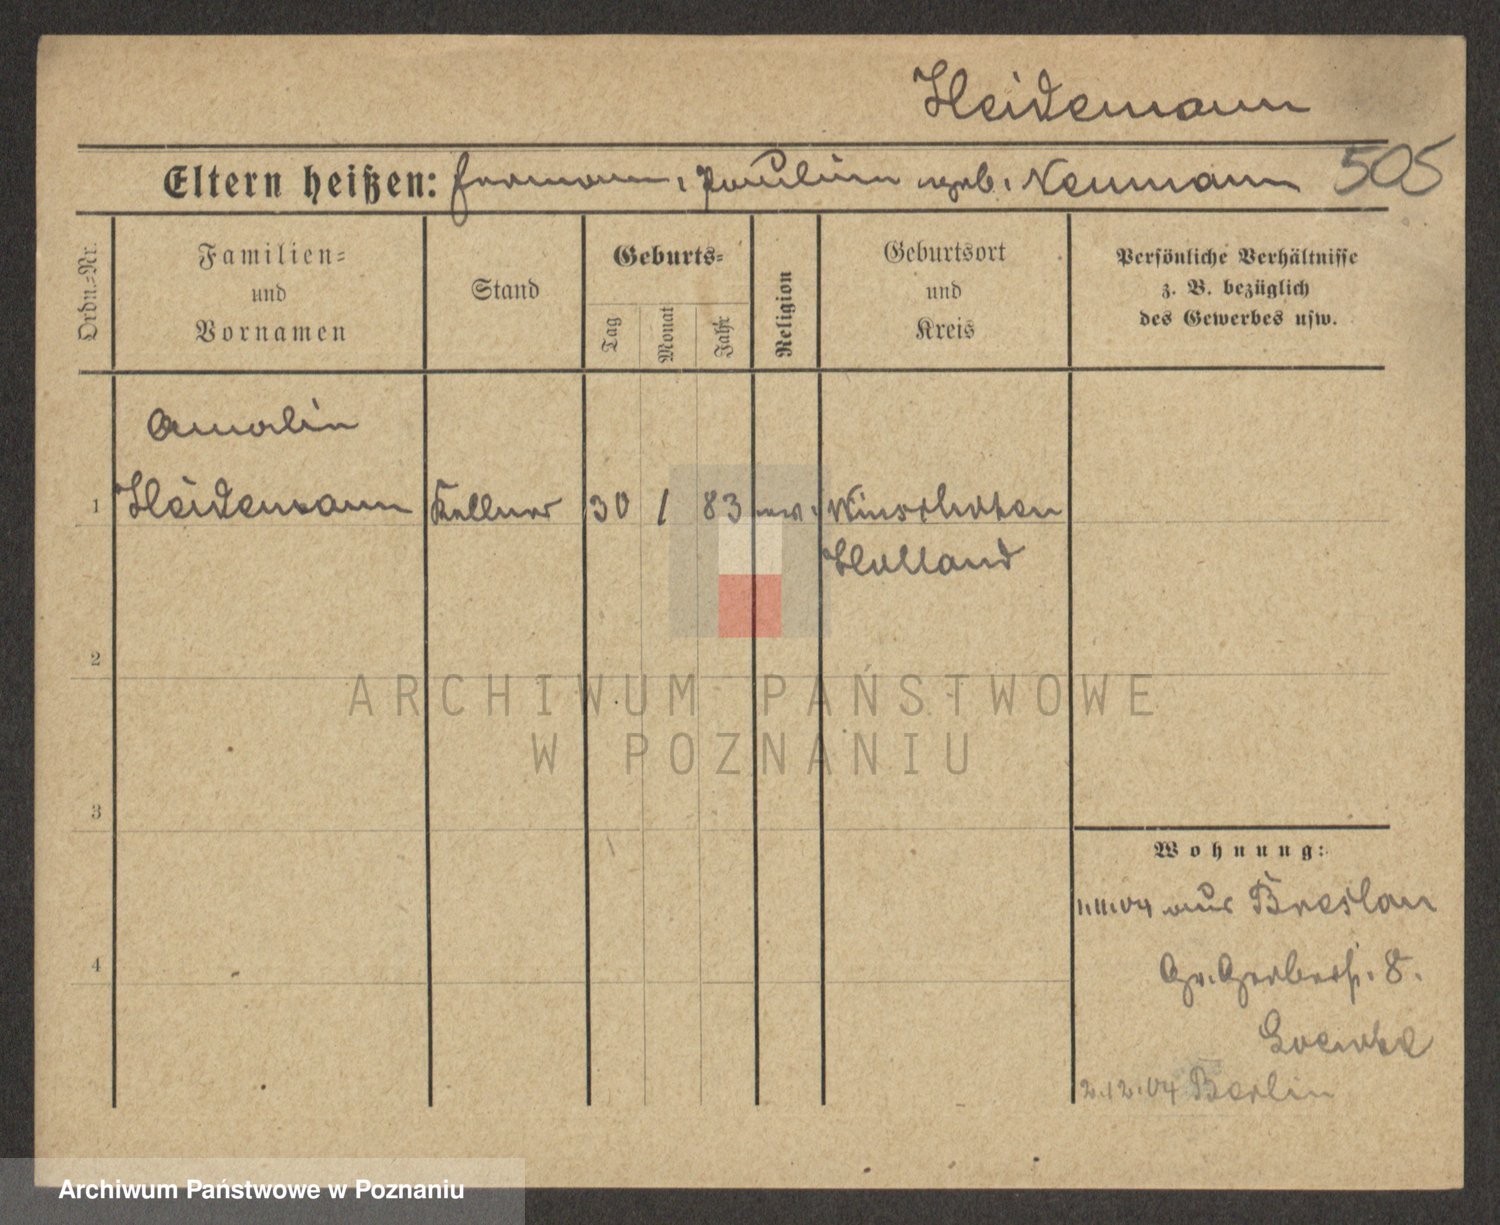 Heidemann
Eltern heißen: Hermann, Pauline geb. Neumann 505
Ordn.-Nr.
Familien-
und
Vornamen
Stand
Geburts-
Tag
Monat
Jahr
Religion
Geburtsort
und
Kreis
Persönliche Verhältnisse
z. B. bezüglich
des Gewerbes usw.
Amalie
1 Heidemann Kellner 30 1 83 ev. Winschoten
Holland
2
ARCHIWUM PAŃSTWOWE
W POZNANIU
3
Wohnung:
1.11.04 aus Breslau
4
Gr. Gerberst. 8.
2.12.04 Berlin
Archiwum Państwowe w Poznaniu